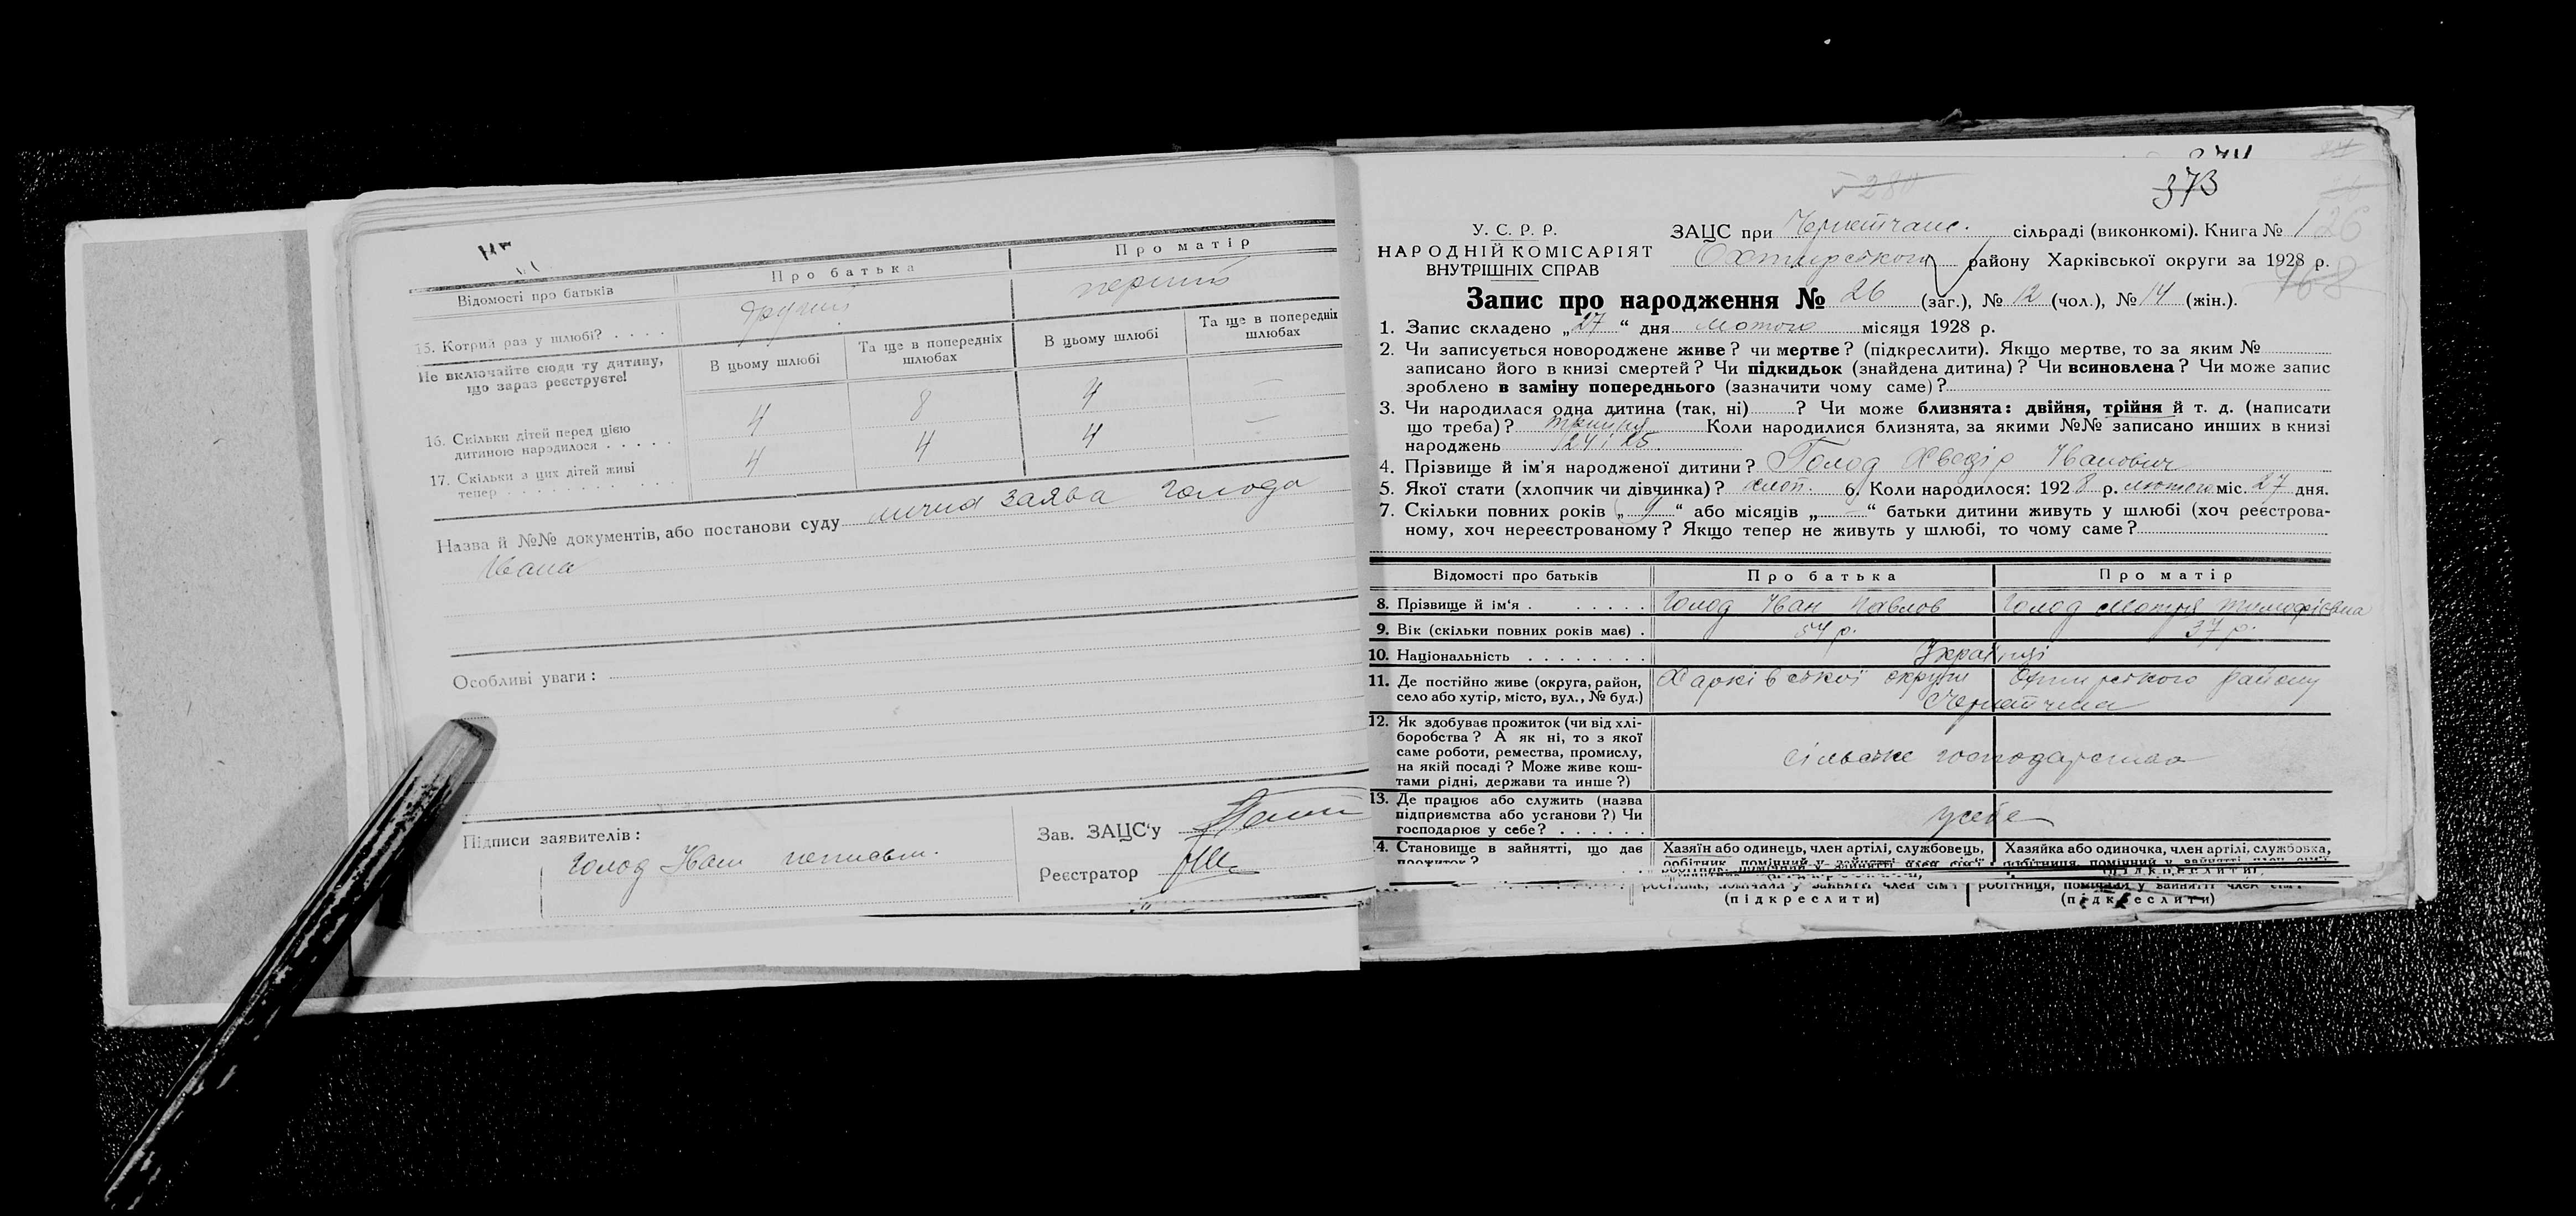 Відомості про батьків
Про батька
Про матір
15. Котрий раз у шлюбі? . . . .
другий
перший
Не включайте сюди ту дитину,
що зараз реєструєте!
В цьому шлюбі
Та ще в попередніх
шлюбах
В цьому шлюбі
Та ще в попередніх
шлюбах
16. Скільки дітей перед цією
дитиною народилося . . . . .
4 8 4 —
17. Скільки з цих дітей живі
тепер . . . . . . . . . . .
4 4 4 —
Назва й №№ документів, або постанови суду лична заява Голода
Ивана
Особливі уваги:
Підписи заявителів:
Голод
Зав. ЗАЦС'у
Реєстратор
373
26
У. С. Р. Р.
НАРОДНІЙ КОМІСАРІЯТ
ВНУТРІШНІХ СПРАВ
ЗАЦС при Чернетчанс. сільраді (виконкомі). Книга № 1
Охтирського району Харківської округи за 1928 р.
168
Запис про народження № 26 (заг.), № 12 (чол.), № 14 (жін.).
1. Запис складено „27“ дня лютого місяця 1928 р.
2. Чи записується новороджене живе? чи мертве? (підкреслити). Якщо мертве, то за яким №
записано його в книзі смертей? Чи підкидьок (знайдена дитина)? Чи всиновлена? Чи може запис
зроблено в заміну попереднього (зазначити чому саме)?
3. Чи народилася одна дитина (так, ні) ? Чи може близнята: двійня, трійня й т. д. (написати
що треба)? трийня Коли народилися близнята, за якими №№ записано инших в книзі
народжень 24 і 25
4. Прізвище й ім'я народженої дитини? Голод Хведір Иванович
5. Якої стати (хлопчик чи дівчинка)? хлоп. 6. Коли народилося: 1928 р. лютого міс. 27 дня.
7. Скільки повних років „9“ або місяців „—“ батьки дитини живуть у шлюбі (хоч реєстрова-
ному, хоч нереєстрованому? Якщо тепер не живуть у шлюбі, то чому саме?
Відомості про батьків
Про батька
Про матір
8. Прізвище й ім'я . . . . . .
Голод Иван Павлов
Голод Мотря Тимофієвна
9. Вік (скільки повних років має) .
54 р.
37 р.
10. Національність . . . . . . . .
Українці
11. Де постійно живе (округа, район,
село або хутір, місто, вул., № буд.)
Харківської округи Охтирского району
Чернетчина
12. Як здобуває прожиток (чи від хлі-
боробства? А як ні, то з якої
саме роботи, ремества, промислу,
на якій посаді? Може живе кош-
тами рідні, держави та инше?)
сільське господарство
13. Де працює або служить (назва
підприємства або установи?) Чи
господарює у себе? . . . . . .
у себе
14. Становище в зайнятті, що дає
прожиток?
Хазяїн або одинець, член артілі, службовець,
робітник, помічний у зайнятті член сім'ї
Хазяйка або одиночка, член артілі, службовка,
робітниця, помічний у зайнятті член сім'ї
(підкреслити)
(підкреслити)